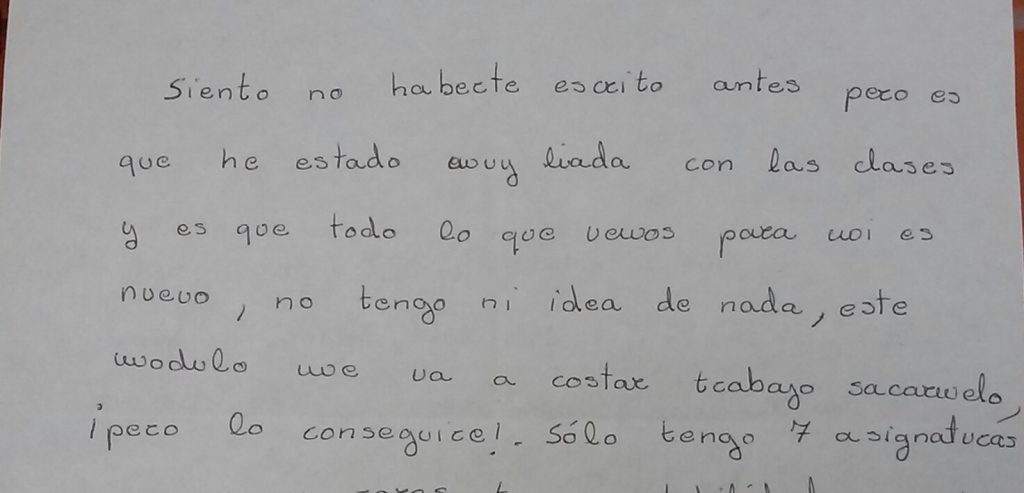 Siento no haberte escrito antes pero es
que he estado muy liada con las clases
y es que todo lo que vemos para mi es
nuevo, no tengo ni idea de nada, este
modulo me va a costar trabajo sacarmelo,
¡pero lo conseguire!. Sólo tengo 7 asignaturas